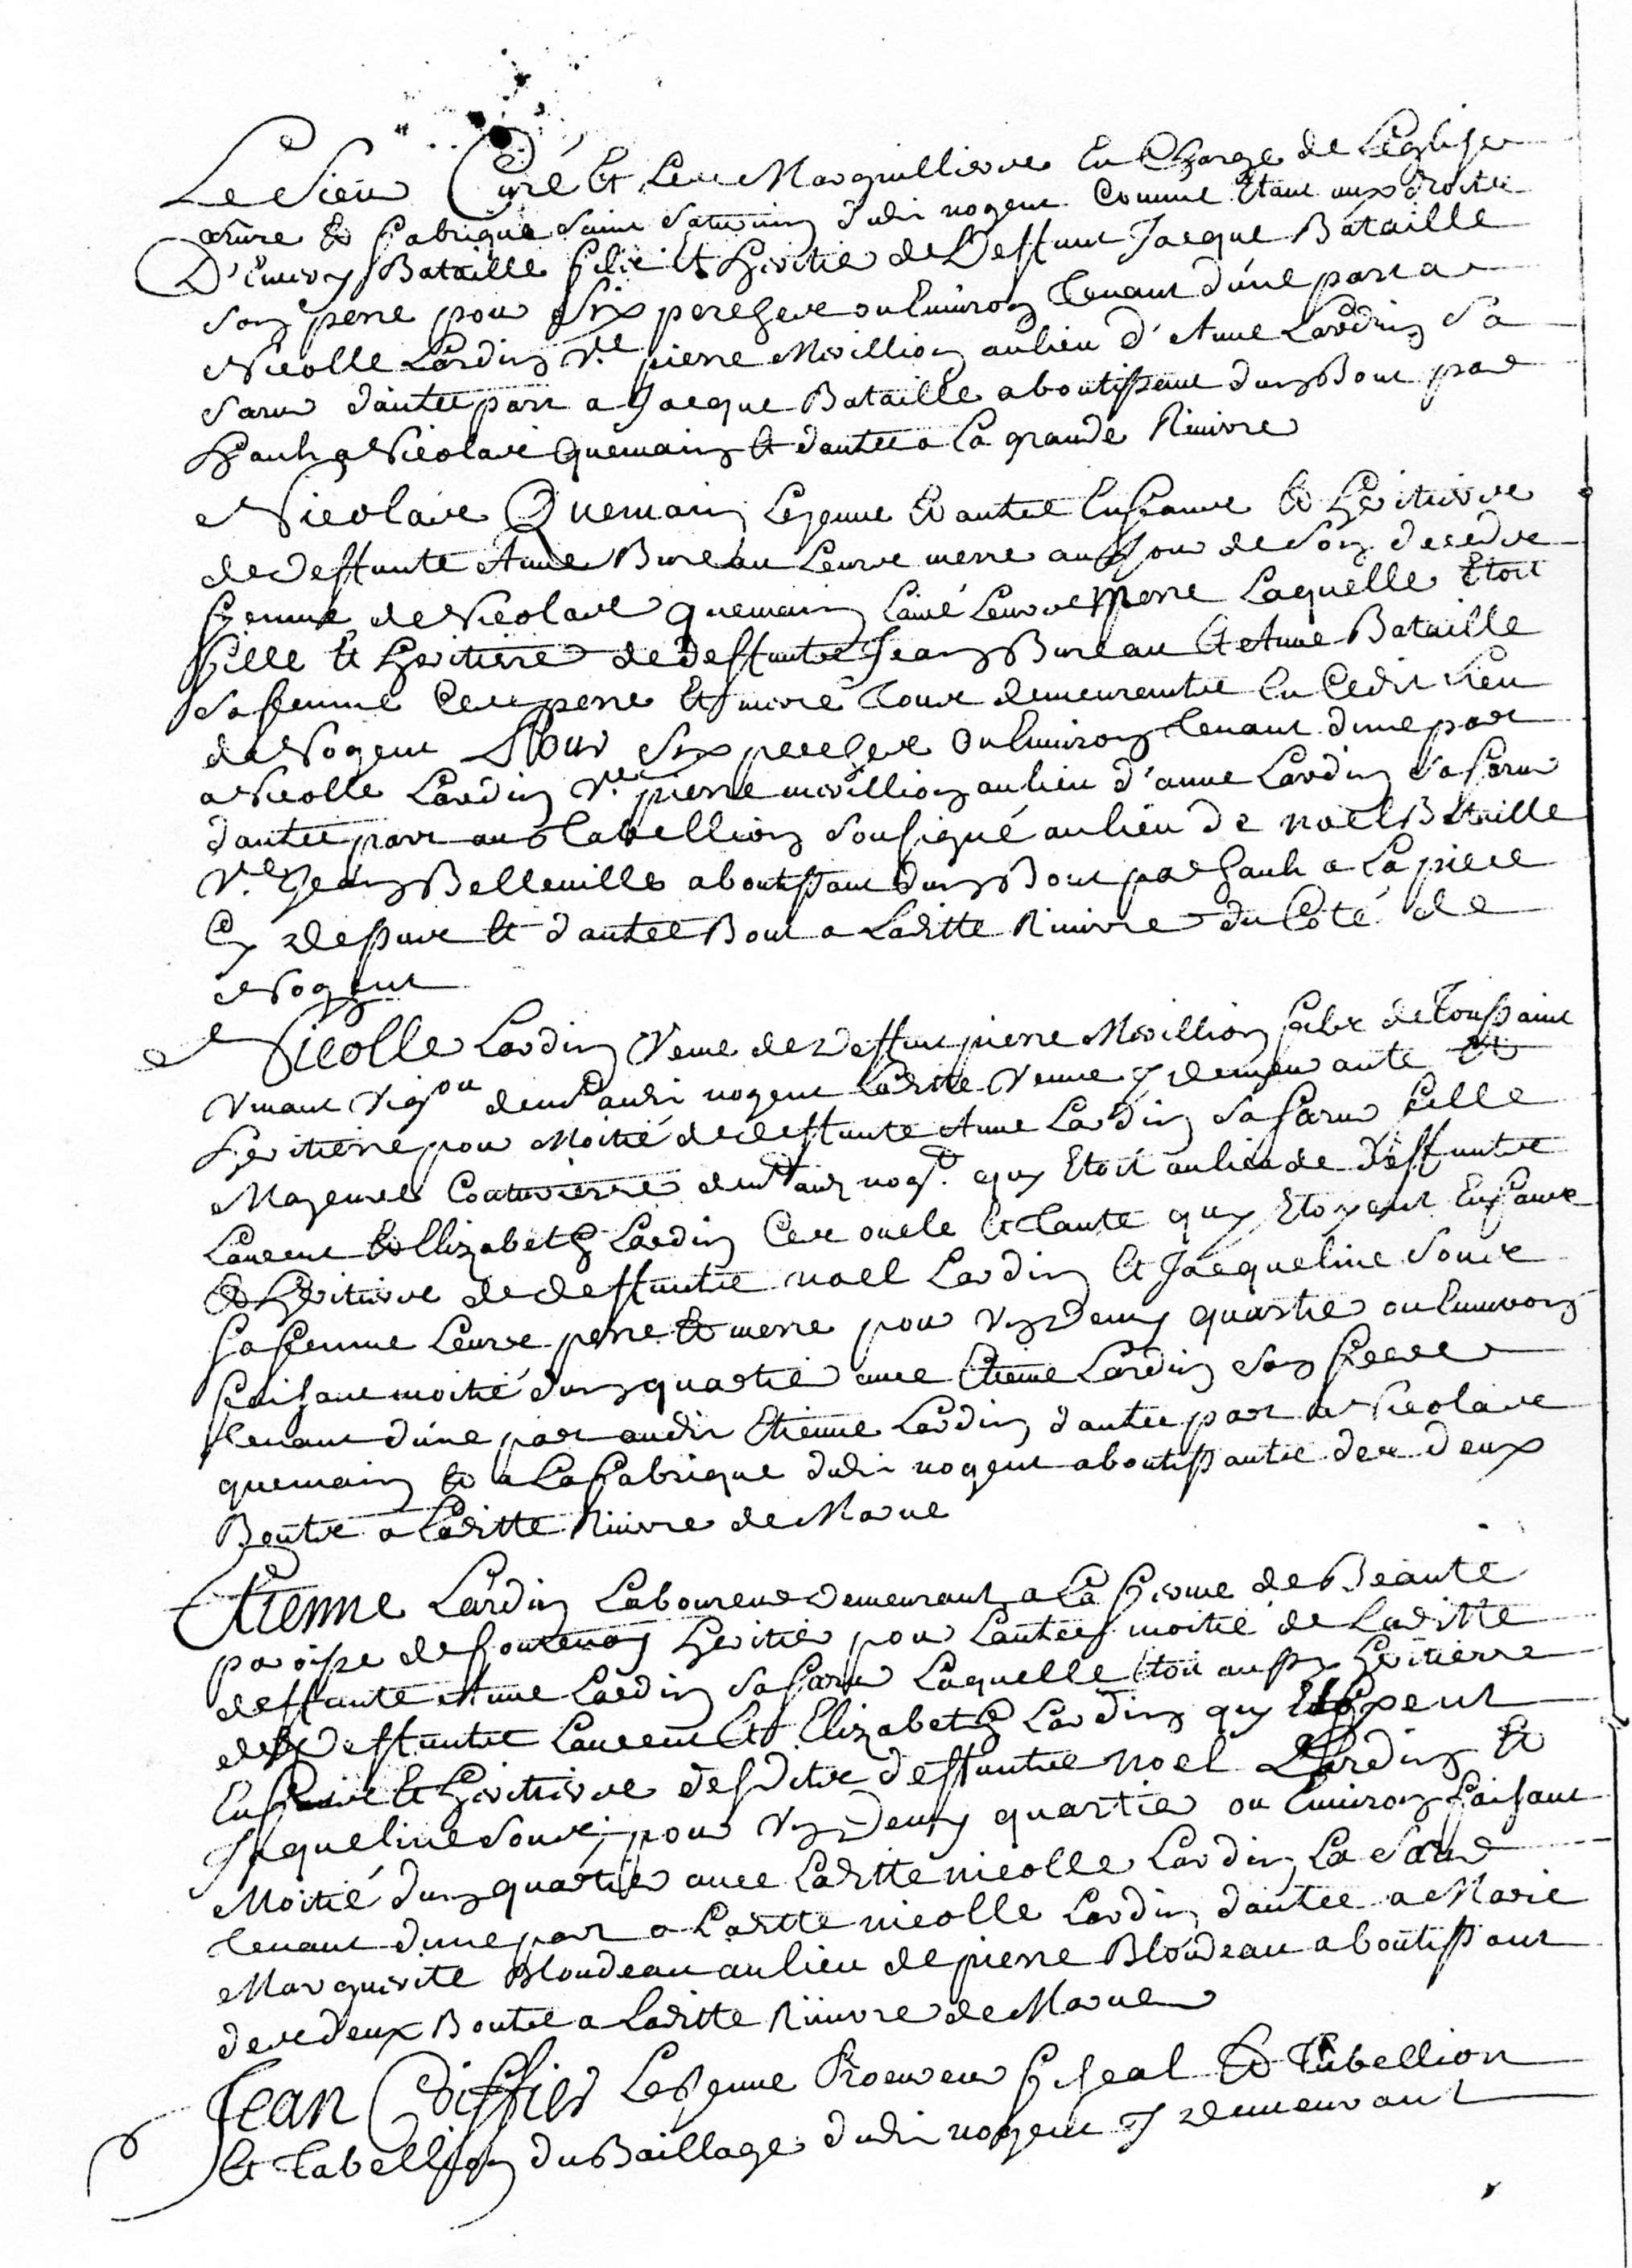 Le Sieur Curé Et Les Marguilliers En Charge de L'Eglise
œuvre Et fabrique Saint Saturnin dudit nogent Comme Etant aux droits
D'Emery Bataille fils Et Heritier de Deffunt Jacque Bataille
son perre pour Six perches ou Environ Tenant d'une part a
Nicolle Lardin Ve pierre Mévillion au lieu d'Anne Lardin Sa
Sœur d'autre part a Jacque Bataille aboutissant d'un Bout par
Hault a Nicolas Quemain Et d'autre a la grande Riuiere
Nicolas Quemain Le jeune Et autres Enfants Et Heritiers
de deffunte Anne Bureau Leurs merre au jour de Son deceds
femme de Nicolas quemain L'ainé Leurs perre Laquelle Etoit
fille Et Heritiere de deffunts Jean Bureau Et Anne Bataille
Sa femme Ces perre Et merre Tous demeurants En Cedit Lieu
de Nogent Pour Six perches Ou Environ Tenant d'une part
a Nicolle Lardin Ve pierre mévillion au lieu d'anne Lardin Sa Sœur
d'autre part au Tabellion Soussigné au lieu de noel Bataille
Ve Jean Belleuille aboutissant d'un Bout par hault a La piece
Cy dessus Et d'autre Bout a Laditte Riuiere du Coté de
Nogent
Nicolle Lardin Veuve de Deffunt pierre Mévillion fils de Toussaint
Viuant Vigon demt audit nogent Laditte Veuue y demeurante Et
Heritiere pour Moitié de deffunte Anne Lardin Sa Sœur fille
Majeure Couturierre demt aud nogt quy Etoit au lieu de deffunts
Laurent Et Elizabeth Lardin Ces oncle Et Tante quy Etoyent Enfants
Et Heritiers de deffunts noel Lardin Et Jacqueline Souis
Sa femme Leurs perre Et merre pour Vn Demy quartier ou Enuiron
faisant moitié d'un quartier auec Etienne Lardin Son frere
Tenant d'une part audit Etienne Lardin d'autre part a Nicolas
quemain Et a La fabrique dudit nogent aboutissants des deux
Bouts a Laditte Riuiere de Marne
Etienne Lardin Laboureur Demeurant a La ferme de Beauté
paroisse de fontenay Heritier pour L'autre moitié de Laditte
deffunte Anne Lardin Sa Sœur Laquelle Etoit aussy Heritierre
des Deffunts Laurent Et Elizabeth Lardin quy Etoyent
Enfants Et Heritiers desdits deffunts noel Lardin Et
Jacqueline Souis, pour Vn Demy quartier ou Enuiron faisant
Moitié d'un quartier auec Laditte nicolle Lardin La Sœur
Tenant d'une part a Laditte nicolle Lardin d'autre a Marie
Marguerite Blondeau au lieu de pierre Blondeau aboutissant
des deux Bouts a Laditte Riuiere de Marne
Jean Coiffier Le Jeune Procureur fiscal Et Tabellion
Et Tabellion du Baillage dudit nogent y demeurant